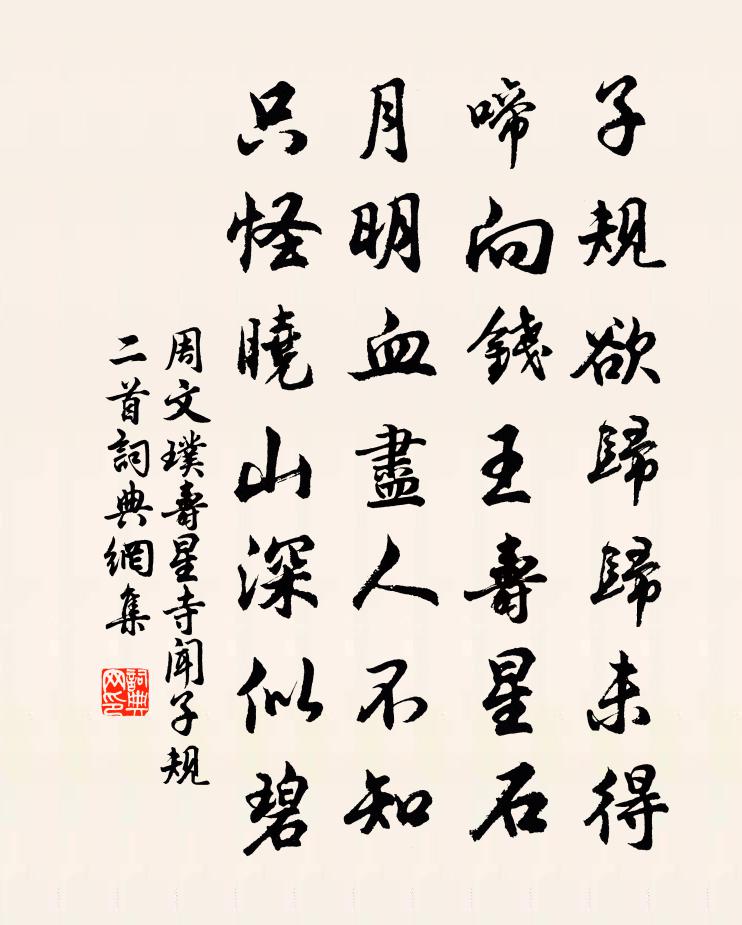 子規欲歸歸未得
啼向錢王壽星石
月明血盡人不知
只怪曉山深似碧
周文璞壽星寺聞子規
二首詞典網集
詞典
网印